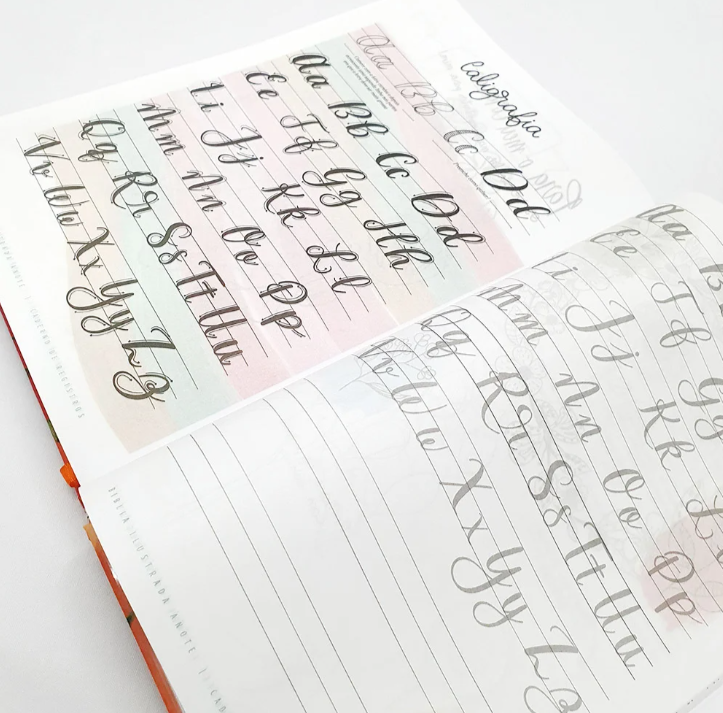 Caligrafia
Aa Bb Cc Dd
Aa Bb Cc Dd
Ee Ff Gg Hh
Ii Jj Kk Ll
Mm Nn Oo Pp
Qq Rr Ss Tt Uu
Vv Ww Xx Yy Zz
Aa B
Ee Ff Gg
Ii Jj Kk L
Mm Nn Oo Pp
Qq Rr Ss Tt Uu
Vv Ww Xx Yy Zz
BÍBLIA ILUSTRADA ANOTE